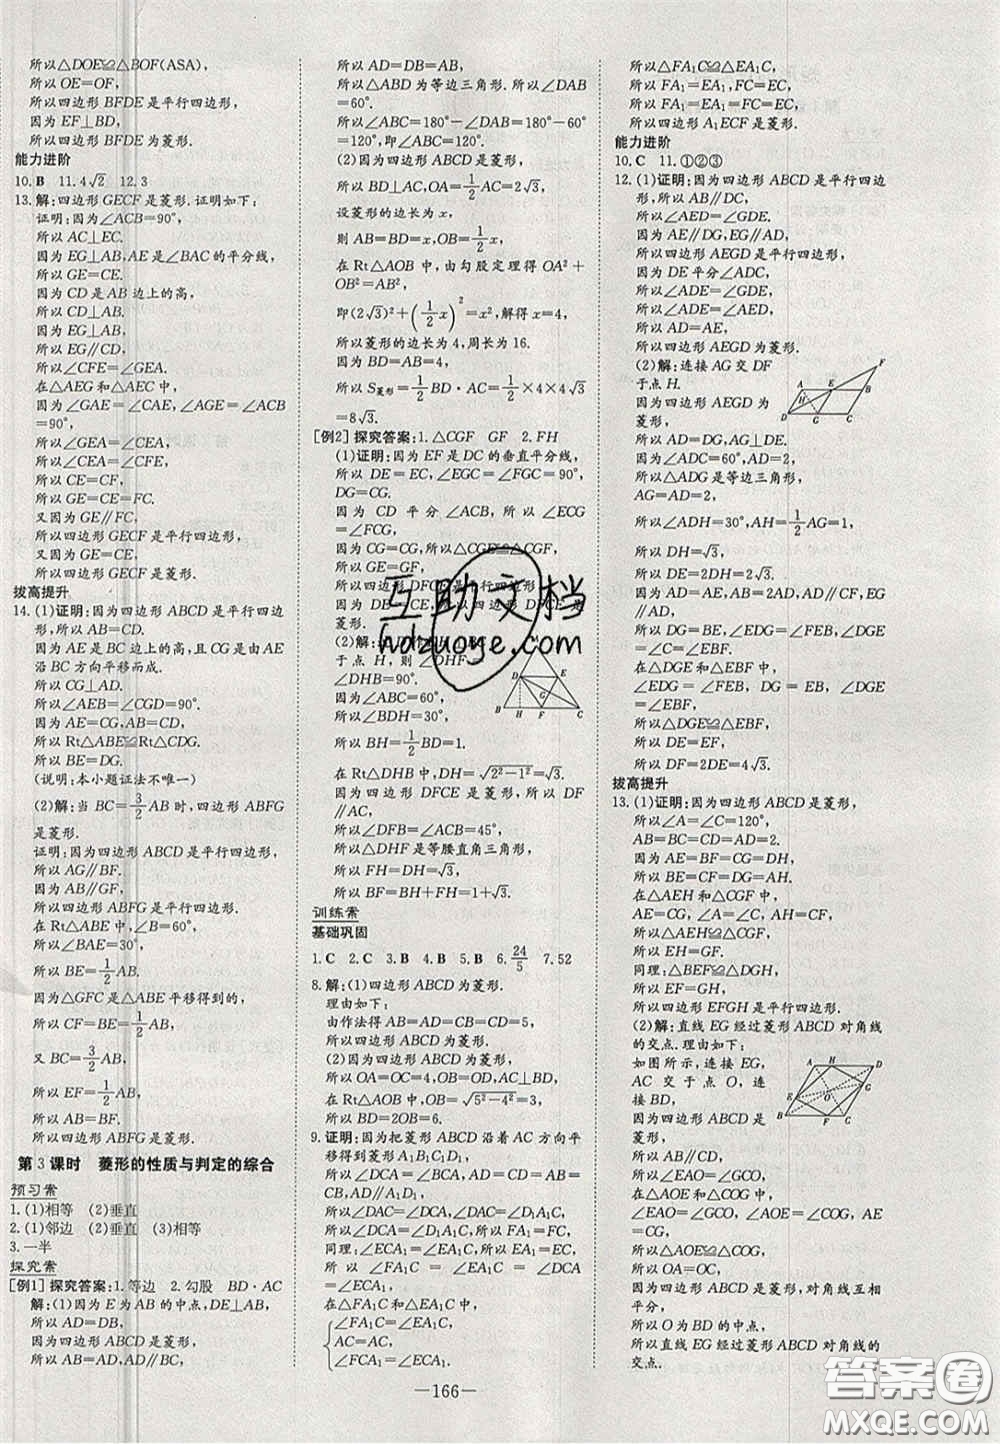 所以△DOE≌△BOF(ASA),
所以 OE=OF,
所以四边形 BFDE 是平行四边形,
因为 EF⊥BD,
所以四边形 BFDE 是菱形.
能力进阶
10.B 11.4√2 12.3
13.解:四边形 GECF 是菱形.证明如下:
证明:因为∠ACB=90°,
所以 AC⊥EC.
因为 EG⊥AB,AE 是∠BAC 的平分线,
所以 GE=CE.
因为 CD 是 AB 边上的高,
所以 CD⊥AB.
因为 EG⊥AB,
所以 EG∥CD,
所以∠CFE=∠GEA.
在△AEG 和△AEC 中,
∠GAE=∠CAE,∠AGE=∠ACB
=90°,
所以∠GEA=∠CEA,
所以∠CEA=∠CFE,
所以 CE=CF,
所以 GE=CE=FC.
又因为 GE∥FC,
所以四边形 GECF 是平行四边形,
又因为 GE=CE,
所以四边形 GECF 是菱形.
拔高提升
14.(1)证明:因为四边形 ABCD 是平行四边
形,所以 AB=CD.
因为 AE 是 BC 边上的高,且 CG 是由 AE
沿 BC 方向平移而成.
所以 CG⊥AD,
所以∠AEB=∠CGD=90°.
因为 AE=CG,AB=CD,
所以 Rt△ABE≌Rt△CDG.
所以 BE=DG.
(说明:本小题证法不唯一)
(2)解:当 BC=3/2AB 时,四边形 ABFG
是菱形.
证明:因为四边形 ABCD 是平行四边形,
所以 AG∥BF.
因为 AB∥GF,
所以四边形 ABFG 是平行四边形.
在 Rt△ABE 中,∠B=60°,
所以∠BAE=30°,
所以 BE=1/2AB.
因为△GFC 是△ABE 平移得到的,
所以 CF=BE=1/2AB,
又 BC=3/2AB,
所以 EF=1/2AB,
所以 AB=BF.
所以四边形 ABFG 是菱形.
第 3 课时 菱形的性质与判定的综合
预习案
1.(1)相等 (2)垂直
2.(1)邻边 (2)垂直 (3)相等
3.一半
探究案
[例1] 探究答案:1.等边 2.勾股 BD·AC
解:(1)因为 E 为 AB 的中点,DE⊥AB,
所以 AD=DB,
因为四边形 ABCD 是菱形,
所以 AB=AD,
所以 AD=DB=AB,
所以△ABD 为等边三角形.所以∠DAB
=60°.
所以∠ABC=180°-∠DAB=180°-60°
=120°,即∠ABC=120°.
(2)因为四边形 ABCD 是菱形,
所以 BD⊥AC,OA=1/2AC=2√3,
设菱形的边长为 x,
则 AB=BD=x,OB=1/2x,
在 Rt△AOB 中,由勾股定理得 OA²+
OB²=AB²,
即(2√3)²+(1/2x)²=x²,解得 x=4,
所以菱形的边长为 4,周长为 16.
因为 BD=AB=4,
所以 S菱形=1/2BD·AC=1/2×4×4√3
=8√3.
[例2] 探究答案:1.△CGF GF 2.FH
(1)证明:因为 EF 是 DC 的垂直平分线,
所以 DE=EC,∠EGC=∠FGC=90°,
DG=CG.
因为 CD 平分∠ACB,所以∠ECG
=∠FCG,
因为 CG=CG,所以△CGE≌△CGF,
所以 GE=GF,
所以四边形 DFCE 是平行四边形.
因为 DE=CE,所以四边形 DFCE 是菱
形.
于点 H,则∠DHF=
∠DHB=90°.
因为∠ABC=60°,
所以∠BDH=30°,
所以 BH=1/2BD=1.
在 Rt△DHB 中,DH=√(2²-1²)=√3.
因为四边形 DFCE 是菱形,所以 DF
∥AC,
所以∠DFB=∠ACB=45°,
所以△DHF 是等腰直角三角形.
所以 FH=DH=√3,
所以 BF=BH+FH=1+√3.
训练案
基础巩固
1.C 2.C 3.B 4.B 5.B 6.24/5 7.52
8.解:(1)四边形 ABCD 为菱形.
理由如下:
由作法得 AB=AD=CB=CD=5,
所以四边形 ABCD 为菱形.
(2)因为四边形 ABCD 为菱形,
所以 OA=OC=4,OB=OD,AC⊥BD,
在 Rt△AOB 中,OB=√(5²-4²)=3,
所以 BD=2OB=6.
9.证明:因为把菱形 ABCD 沿着 AC 方向平
移得到菱形 A₁B₁C₁D₁,
所以 DA=DC,AB∥CD,AB=AD=
CB,A₁D₁∥AD,
所以∠DAC=∠DCA=∠FA₁C,
所以∠DCA=∠D₁A₁C=∠FCA₁,
同理:∠ECA₁=∠EA₁C=∠DCA,
所以∠FA₁C=∠EA₁C,∠FCA₁=
∠ECA₁,
在△FA₁C 和△EA₁C 中,
∠FA₁C=∠EA₁C,
AC=AC,
∠FCA₁=∠ECA₁,
所以△FA₁C≌△EA₁C,
所以 FA₁=EA₁,FC=EC,
所以 FA₁=EA₁=FC=EC,
所以四边形 A₁ECF 是菱形.
能力进阶
10.C 11.①②③
12.(1)证明:因为四边形 ABCD 是平行四边
形,所以 AB∥DC,
所以∠AED=∠GDE.
因为 AE∥DG,EG∥AD,
所以四边形 AEGD 是平行四边形.
因为 DE 平分∠ADC,
所以∠ADE=∠GDE,
所以∠ADE=∠AED,
所以 AD=AE,
所以四边形 AEGD 为菱形.
(2)解:连接 AG 交 DF
于点 H.
因为四边形 AEGD 为
菱形,
所以 AD=DG,AG⊥DE.
因为∠ADC=60°,AD=2,
所以△ADG 是等边三角形,
AG=AD=2,
所以∠ADH=30°,AH=1/2AG=1,
所以 DH=√3,
所以 DE=2DH=2√3.
因为 AD=AE,AB=2AD,AD∥BF,
所以 DG=BE,∠EDG=∠FEB,∠DGE
=∠C=∠EBF,
在△EDG 和△FEB 中,
∠EDG=∠FEB,DG=BE,∠DGE
=∠EBF,
所以△DGE≌△EBF,
所以 DE=EF,
所以 DF=2DE=4√3.
拔高提升
13.(1)证明:因为四边形 ABCD 是菱形,
所以∠A=∠C=120°,
AB=BC=CD=AD.
因为 AE=BF=CG=DH,
所以 BE=CF=DG=AH.
在△AEH 和△CGF 中,
AE=CG,∠A=∠C,AH=CF,
所以△AEH≌△CGF.
所以 EH=GF.
同理:△BEF≌△DGH,
所以 EF=GH,
所以四边形 EFGH 是平行四边形.
(2)解:直线 EG 经过菱形 ABCD 对角线
的交点.理由如下:
如图所示,连接 EG,
AC 交于点 O,连
接 BD.
因为四边形 ABCD 是
菱形,
所以 AB∥CD,
所以∠EAO=∠GCO.
在△AOE 和△COG 中,
∠EAO=∠GCO,∠AOE=∠COG,
AE=CG,
所以△AOE≌△COG,
所以 AO=CO.
因为菱形 ABCD 中,对角线互相
平分,
所以 O 为 BD 的中点,
所以直线 EG 经过菱形 ABCD 对角线的
交点.
—166—
互助文档
hdzuoye.com
答案圈
MXQE.COM